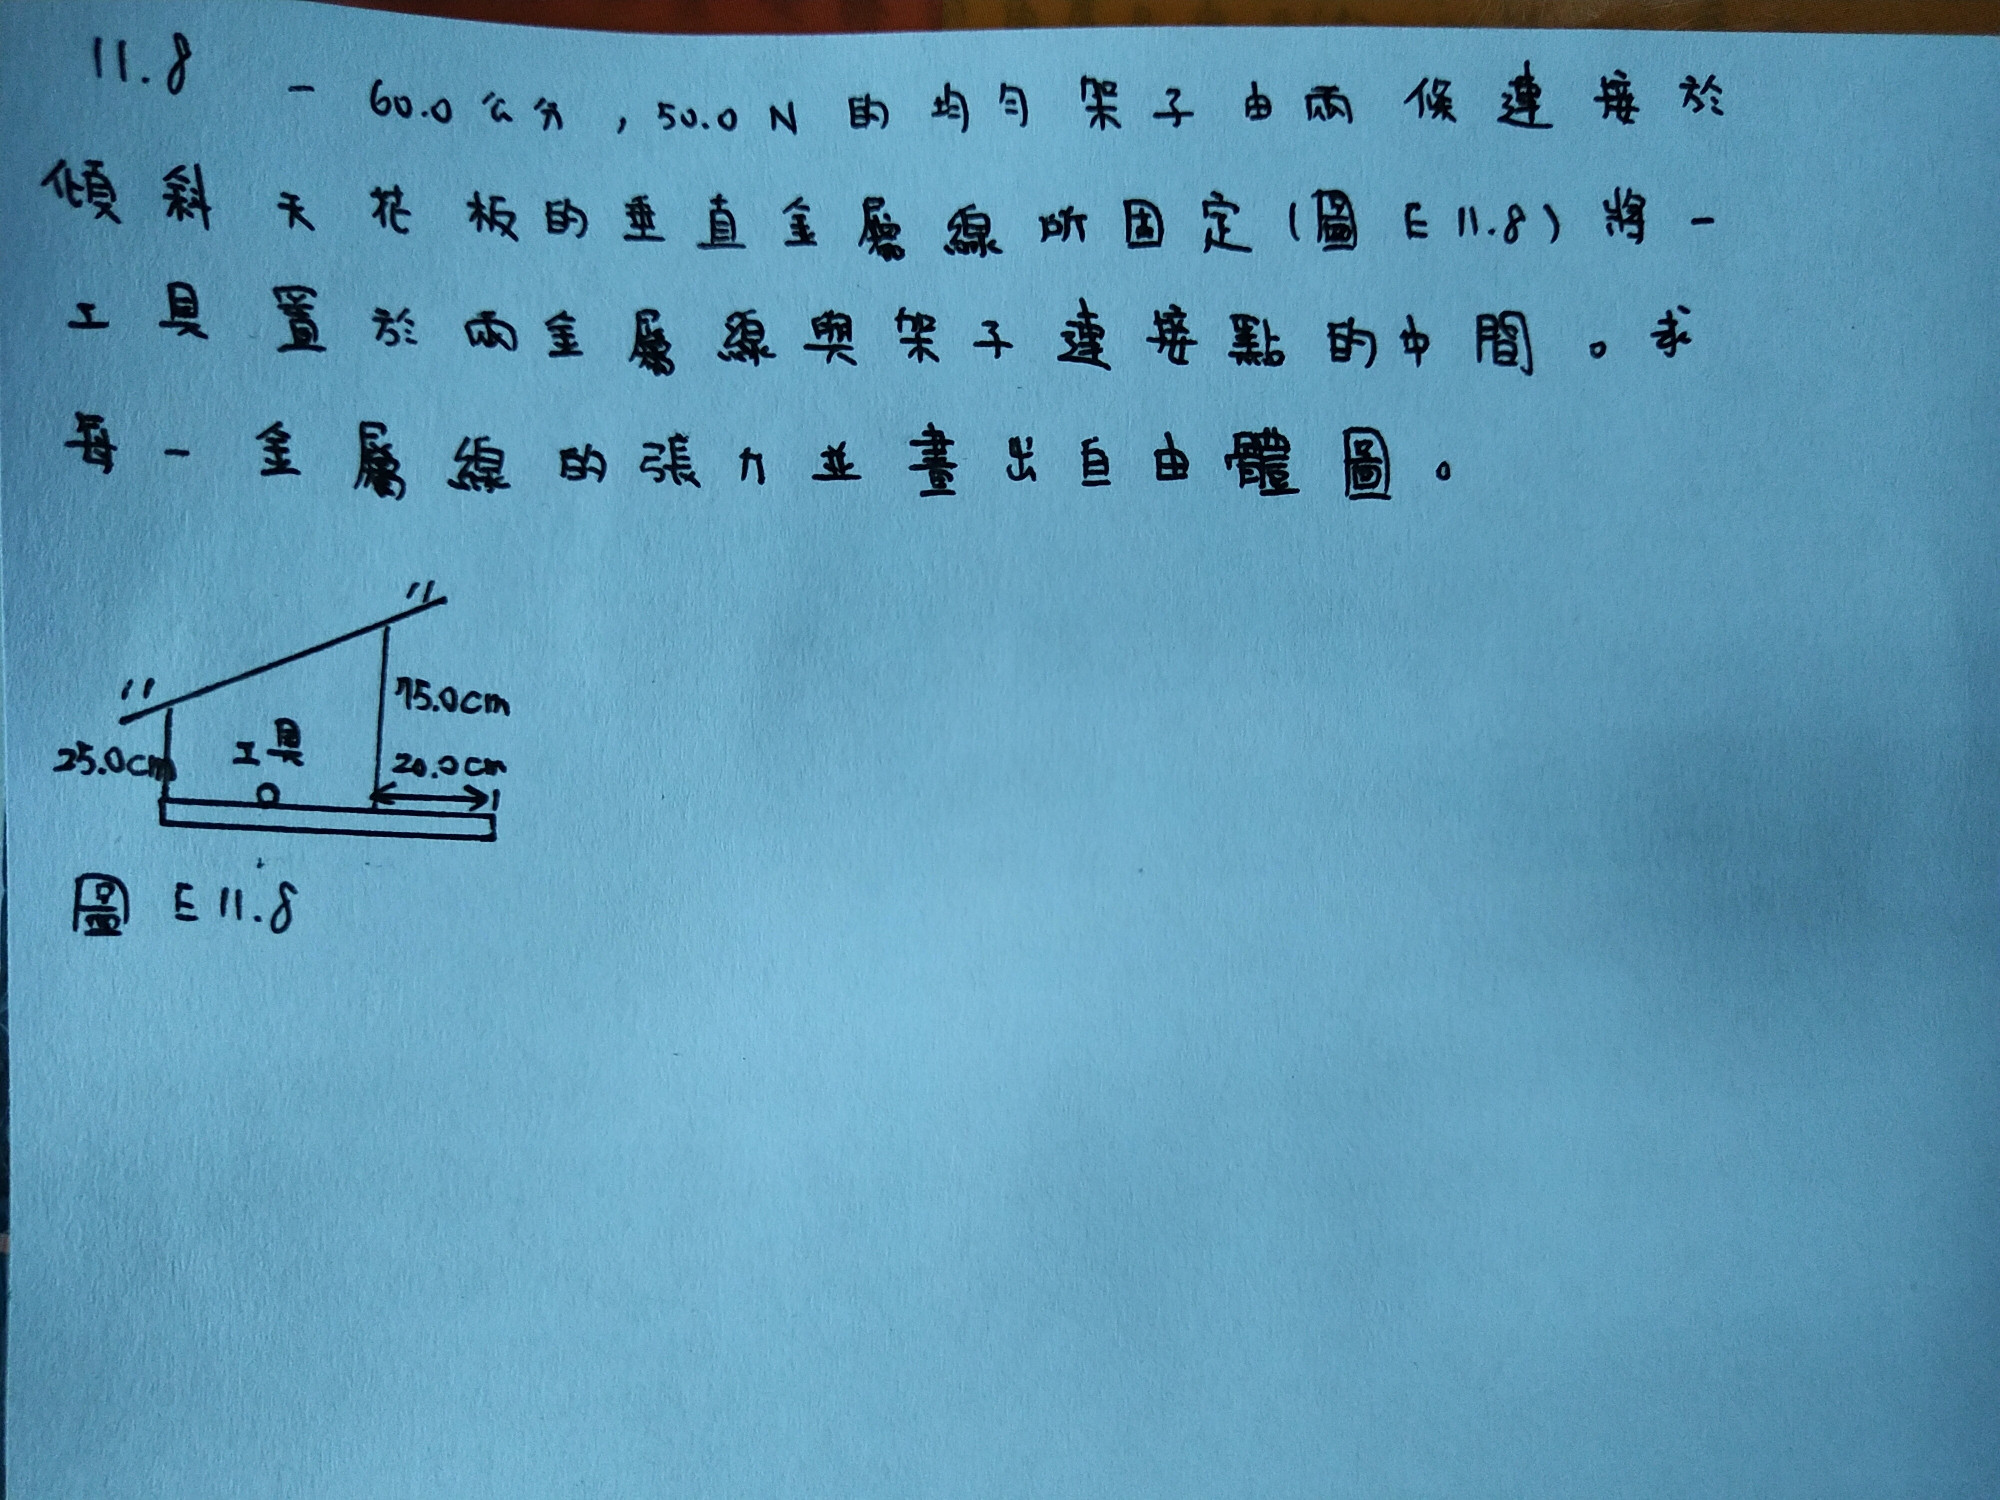 11.8 一 60.0 公分，50.0 N 的均勻架子由兩條連接於
傾斜天花板的垂直金屬線所固定(圖 E 11.8)將一
工具置於兩金屬線與架子連接點的中間。求
每一金屬線的張力並畫出自由體圖。
75.0cm
25.0cm 工具 20.0cm
圖 E 11.8